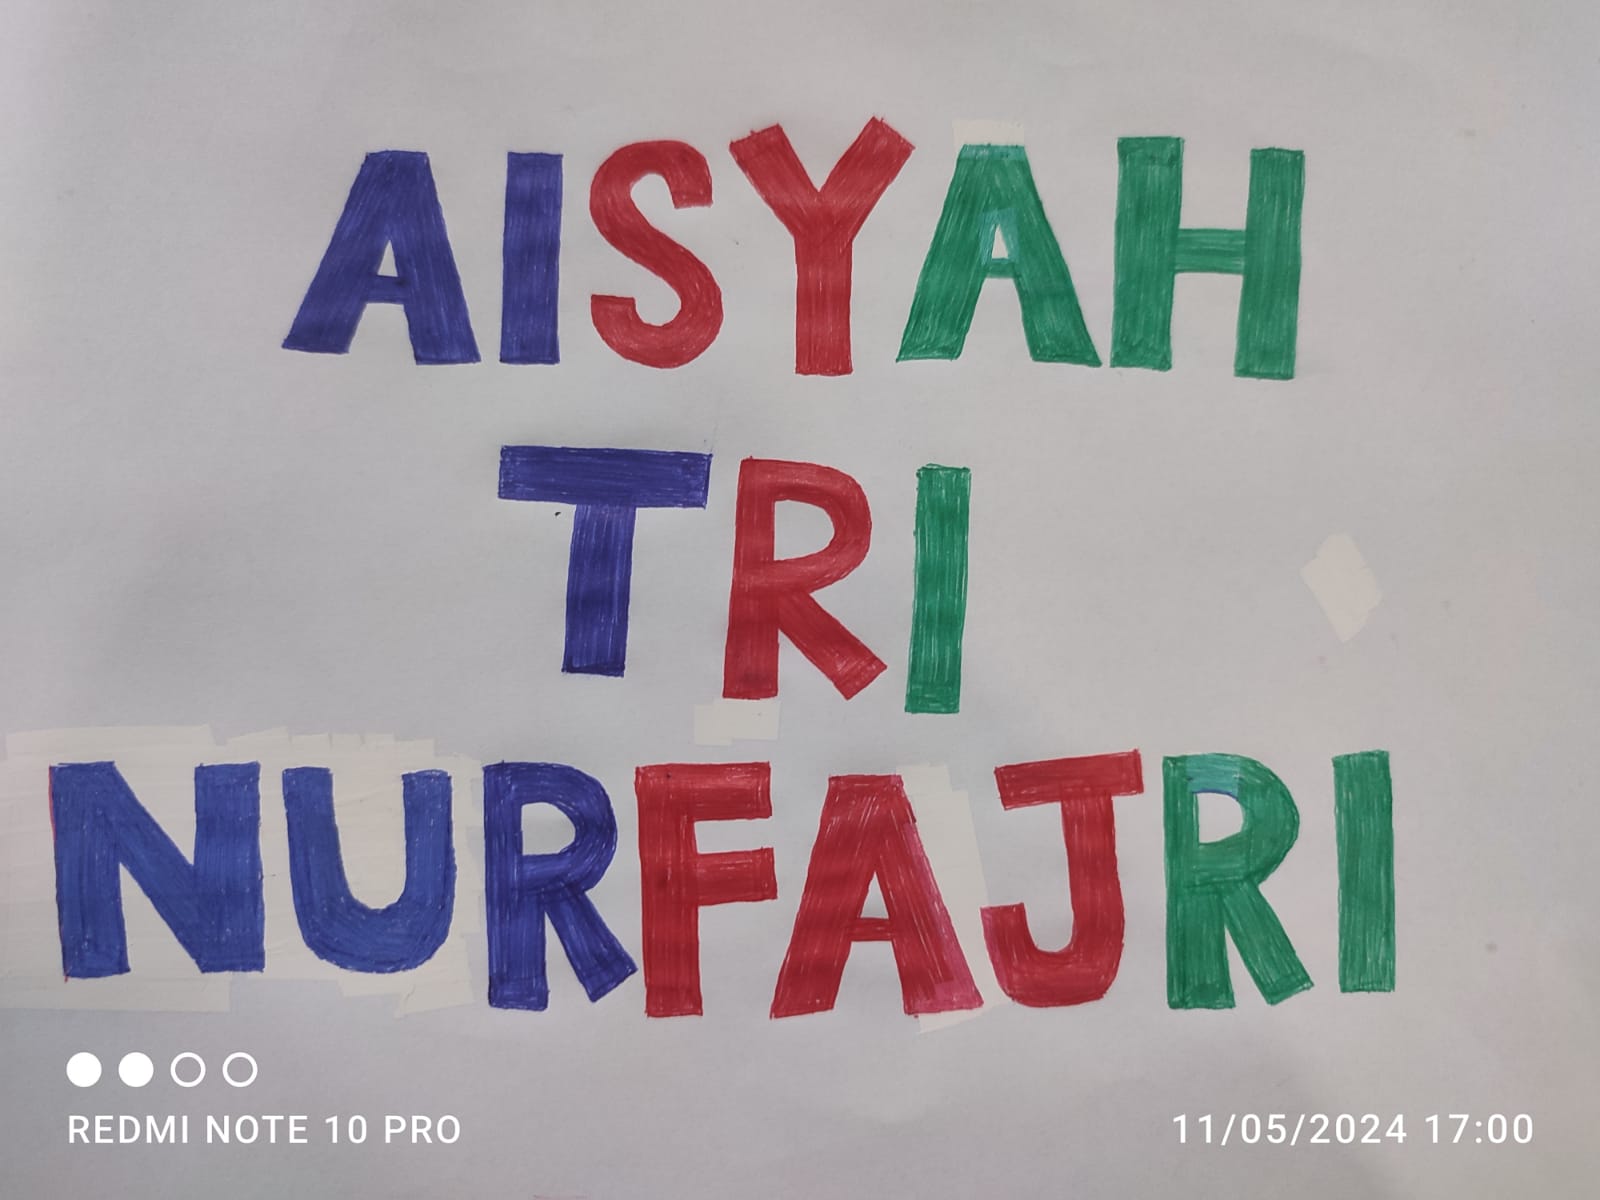 AISYAH
TRI
NURFAJRI
REDMI NOTE 10 PRO
11/05/2024 17:00